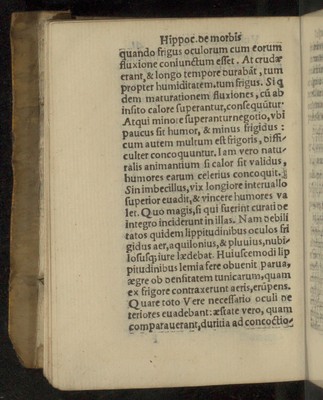 Hippoc. de morbis
quando frigus oculorum cum eorum
fluxione coniunctum esset. At crudæ
erant, & longo tempore durabāt, tum
propter humiditatem, tum frigus. Si q
dem maturationem fluxiones, cū ab
insito calore superantur, consequūtur.
At qui minore superantur negotio, vbi
paucus sit humor, & minus frigidus:
cum autem multum est frigoris, diffi-
culter concoquuntur. Iam vero natu-
ralis animantium si calor sit validus,
humores earum celerius concoquit.
Sin imbecillus, vix longiore interuallo
superior euadit, & vincere humores va
let. Quo magis, si qui fuerint curati de
integro inciderunt in illas. Nam debili
tatos quidem lippitudinibus oculos fri
gidus aer, aquilonius, & pluuius, nubi-
losusq; iure lædebat. Huiuscemodi lip
pitudinibus lemia fere obuenit parua,
ægre ob densitatem tunicarum, quam
ex frigore contraxerunt aeris, erūpens.
Quare toto Vere necessario oculi de
teriores euadebant: æstate vero, quam
comparauerant, duritia ad concoctio-